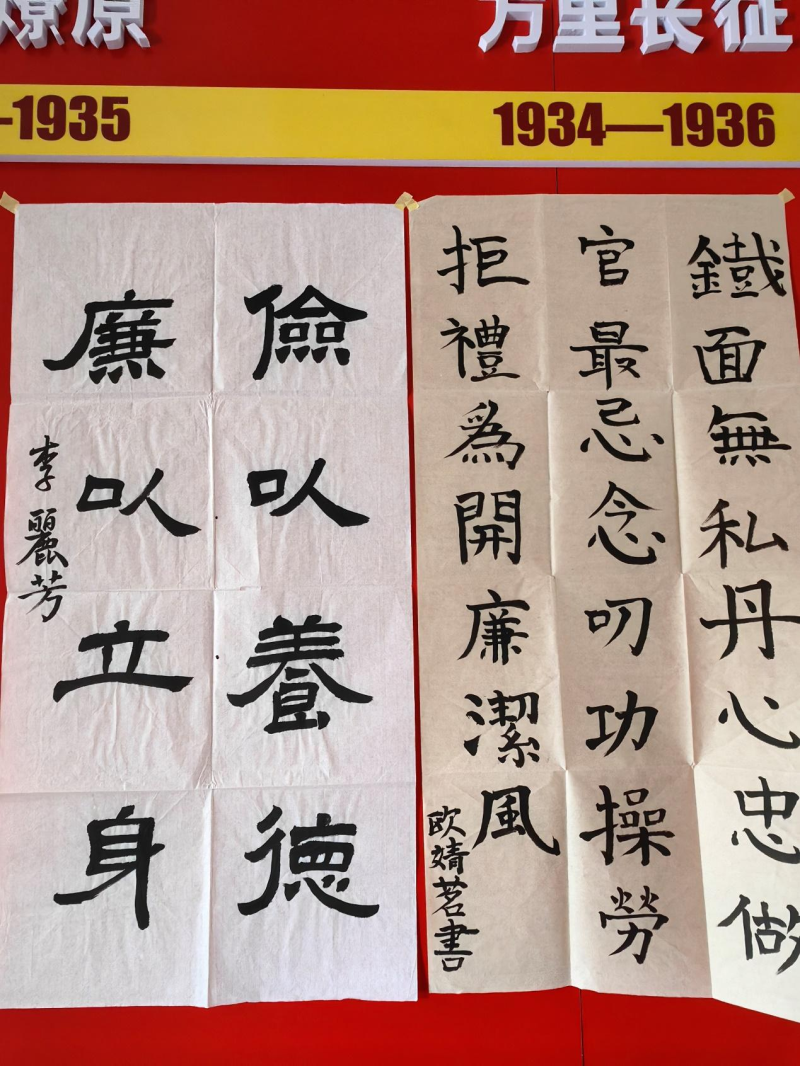 燎原
万里长征
–1935
1934—1936
儉以養德
廉以立身
李麗芳
鐵面無私丹心忠做
官最忌念叨功操勞
拒禮爲開廉潔風
欧婧茗書